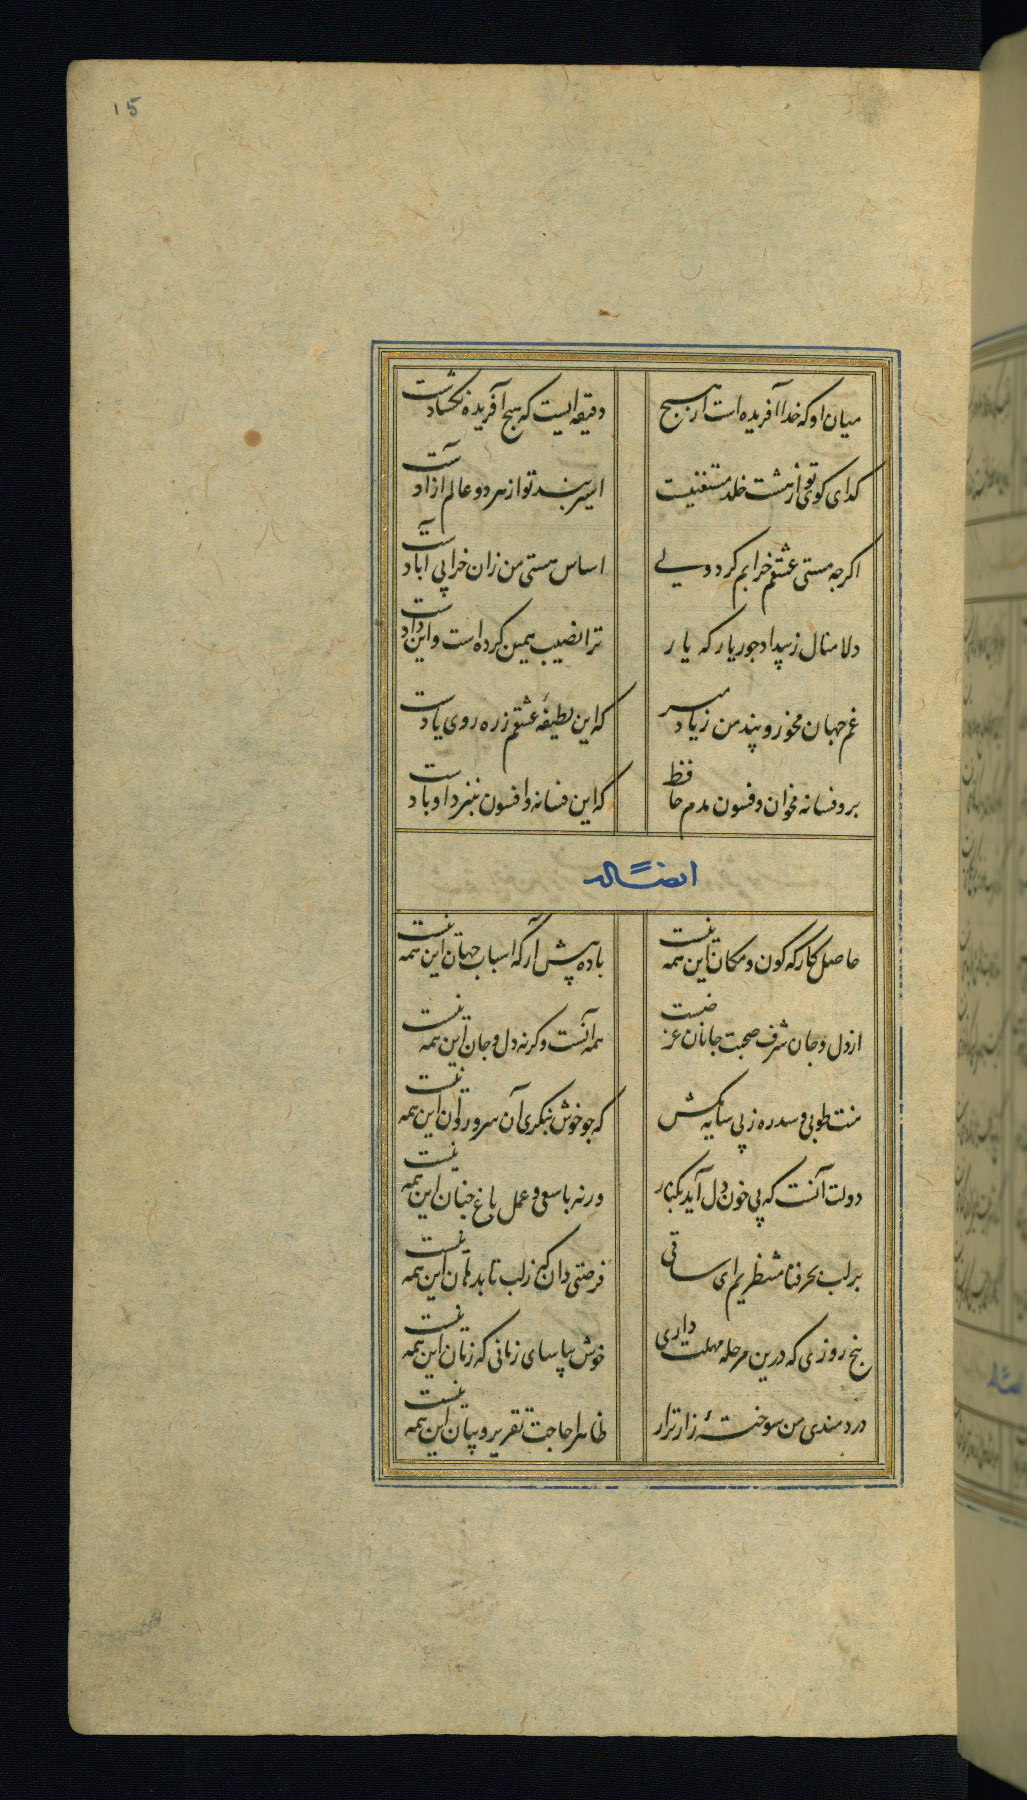 15
میان او که خدا آفریده است از هیچ دقیقه ایست که هیچ آفریده نکشادست
کدای کوی تو از هشت خلد مستغنیست اسیر بند تو از هر دو عالم ازادست
اکرچه مستی عشقم خراب کرد ولی اساس هستی من زان خرابی آبادست
دلا منال ز بیداد جور یار که یار ترا نصیب همین کرده است و این دادست
غم جهان مخور و پند من مبر زیاد که این لطیفهٔ عشقم ز ره روی یادست
برو فسانه مخوان و فسون مدم حافظ که این فسانه و افسون بنیزد او بادست
ایضاً له
حاصل کارکه کون و مکان این همه نیست باده پیش آر که اسباب جهان این همه نیست
از دل و جان شرف صحبت جانان غرضست همه آنست وکرنه دل و جان این همه نیست
منت طوبی و سدره ز پی سایه مکش که چو خوش بنکری آن سرو روان این همه نیست
دولت آنست که بی خون دل آید بکنار ورنه با سعی و عمل باغ جنان این همه نیست
بر لب بحر فنا منتظریم ای ساقی فرصتی دان که ز لب تا بدهان این همه نیست
پنج روزی که درین مرحله مهلت داری خوش بیاسای زمانی که زمان این همه نیست
دردمندی من سوختهٔ زار نزار ظاهرا حاجت تقریر و بیان این همه نیست